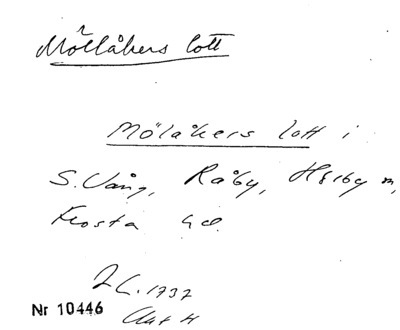 Möllåkers lott
Mölåkers lott i
S. Vång, Råby, Hörby
Frosta hd.
1737
Nr 10446